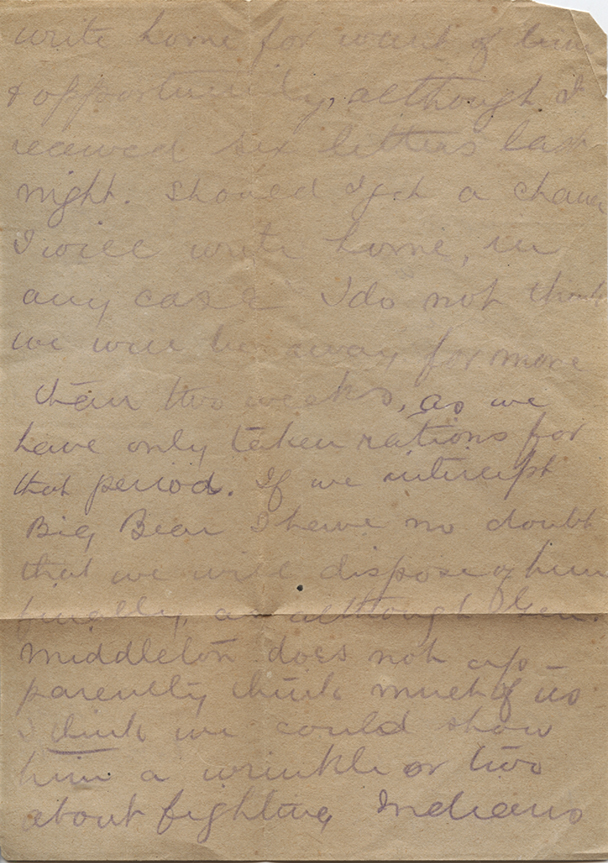 write home for want of time
& opportunity, although I
received six letters last
night. Should I get a chance
I will write home, in
any case I do not think
we will be away for more
than two weeks, as we
have only taken rations for
that period. If we intercept
Big Bear I have no doubt
that we will dispose of him
finally, although Gen.
Middleton does not ap-
parently think much of us
I think we could show
him a wrinkle or two
about fighting Indians